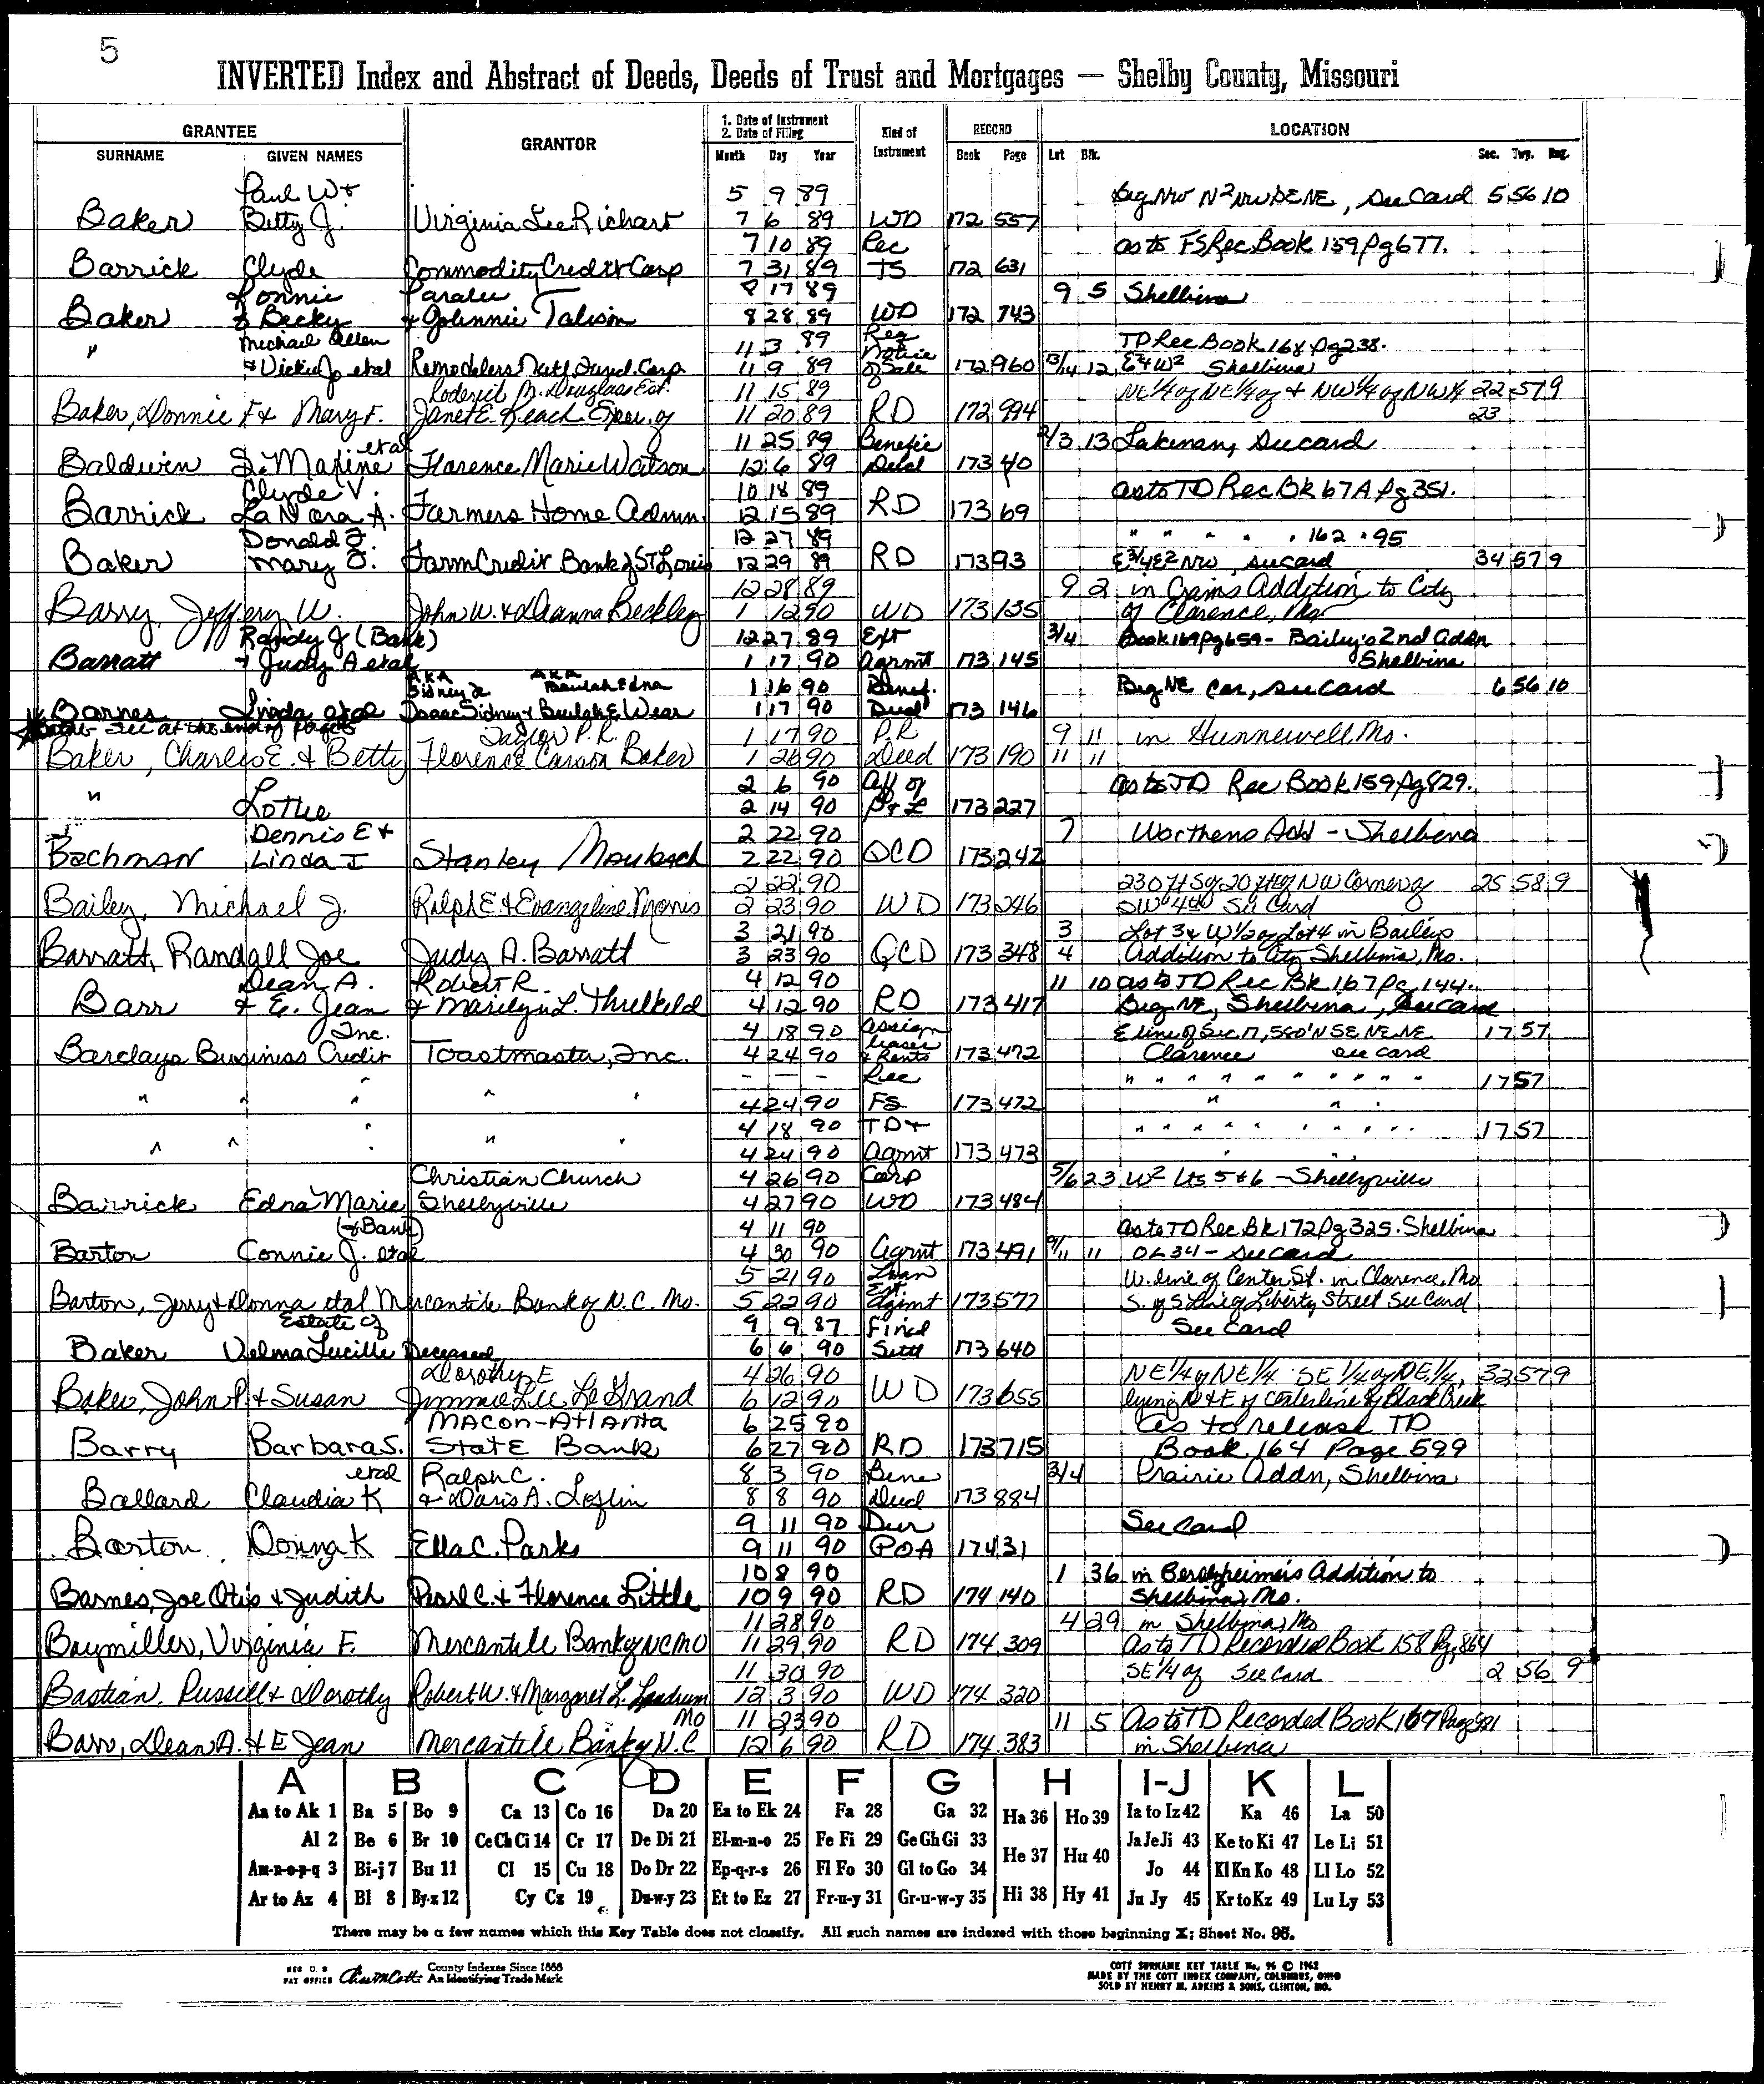 5
INVERTED Index and Abstract of Deeds, Deeds of Trust and Mortgages — Shelby County, Missouri
GRANTEE GRANTOR 1. Date of Instrument 2. Date of Filing Kind of Instrument RECORD LOCATION
SURNAME GIVEN NAMES Month Day Year Book Page Lot Blk. Sec. Twp. Rng.
Paul W & 5 9 89 Beg NW N2 NW SE NE, See Card 5 56 10
Baker Betty J. Virginia Lee Richart 7 6 89 WD 172 557
7 10 89 Rec as to FS Rec Book 159 Pg 677.
Barrick Clyde Commodity Credit Corp 7 31 89 TS 172 631
Lonnie Laralee 8 17 89 9 5 Shelbina
Baker & Becky & Johnnie Talison 8 28 89 WD 172 743
Michael Allen 11 3 89 Req Notice TD Rec Book 168 Pg 238.
" & Vicki Jo etal Remodelers Natl Fund. Corp 11 9 89 of Sale 172 960 13/14 12 Shelbina
Roderick M. Douglass Est. 11 15 89 NE 1/4 of NE 1/4 of & NW 1/4 of NW 1/4 22 57 9
Baker, Donnie F & Mary F. Janet E. Keach Exper. of 11 20 89 RD 172 994 23
etal 11 25 89 Benefic 2/3 13 Lakenan, See card
Baldwin L. Maxine Florence Marie Watson 12 6 89 Deed 173 40
Clyde V. 10 18 89 as to TD Rec Bk 67A Pg 351.
Barrick LaNora A. Farmers Home Admn. 12 15 89 RD 173 69
Donald F. 12 27 89 " " " " " 162 " 95
Baker Mary J. Farm Credit Bank of St Louis 12 29 89 RD 173 93 E 3/4 E2 NW, see card 34 57 9
12 28 89 9 2 in Crams Addition to City
Barry, Jeffery W. John W. & Deanna Beckley 1 12 90 WD 173 135 of Clarence, Mo
Randy J (Bank) 12 27 89 Ext 3/4 Book 169 pg 659 - Bailey's 2nd Addn
Barratt & Judy A etal 1 17 90 Agrmt 173 145 Shelbina
AKA Sidney AKA Beulah Edna 1 16 90 Benef. Beg NE Cor, See Card 6 56 10
Barnes Linda etal Isaac Sidney & Beulah E. Wear 1 17 90 Deed 173 146
see at the end of pages
Taylor P.R. 1 17 90 P.R 9 11 in Hunnewell Mo.
Baker, Charles E. & Betty Florence Carson Baker 1 26 90 Deed 173 190 11 11
2 6 90 Aff of as to TD Rec Book 159 Pg 829.
" Lottie 2 14 90 173 227
Dennis E & 2 22 90 7 Worthens Add - Shelbina
Bachman Linda I Stanley Maubach 2 22 90 QCD 173 242
2 22 90 230 ft S of 20 ft of NW Corner of 25 58 9
Bailey, Michael J. Ralph E. & Evangeline Morris 2 23 90 WD 173 246 See Card
3 21 90 3 Lot 3 & W 1/2 of Lot 4 in Baileys
Barratt, Randall Joe Judy A. Barratt 3 23 90 QCD 173 348 4 Addition to City Shelbina, Mo.
Dean A. Robert R. 4 12 90 11 10 as to TD Rec Bk 167 Pg 144.
Barr & E. Jean & Marilyn L. Threlkeld 4 12 90 RD 173 417 Beg NE, Shelbina, See Card
Inc. 4 18 90 Assign E line of Sec. 17, 580' N SE NE NE 17 57
Barclays Business Credit Toastmaster, Inc. 4 24 90 Leases & Rents 173 472 Clarence see card
- - - Rec " " " " " " " " " " 17 57
" " " " " 4 24 90 FS 173 472 " "
4 18 90 TD & " " " " " " " " " " 17 57
" " " " " 4 24 90 Agrmt 173 473 " "
Christian Church 4 26 90 Corp 5/6 23 W2 Lts 5 & 6 - Shelbyville
Barrick Edna Marie Shelbyville 4 27 90 WD 173 484
(& Bank) 4 11 90 as to TD Rec Bk 172 Pg 325. Shelbina
Barton Connie J. etal 4 30 90 Agrmt 173 491 9/11 11 OL 34 - See card
5 21 90 Loan W. line of Center St. in Clarence, Mo
Barton, Jerry & Donna etal Mercantile Bank of N.C. Mo. 5 22 90 Ext. Agrmt 173 577 S. of S Line of Liberty Street See Card
Estate of 9 9 87 Final See Card
Baker Velma Lucille Deceased 6 6 90 Settl 173 640
Dorothy E 4 26 90 NE 1/4 of NE 1/4 SE 1/4 of NE 1/4, 32 57 9
Baker, John P. & Susan Jimmie Lee LeGrand 6 12 90 WD 173 655 lying N & E of centerline of Black Creek
Macon-Atlanta 6 25 90 as to release TD
Barry Barbara S. State Bank 6 27 90 RD 173 715 Book 164 Page 599
etal Ralph C. 8 3 90 Bene 3/4 Prairie Addn, Shelbina
Ballard Claudia K & Doris A. Loflin 8 8 90 Deed 173 884
9 11 90 Dur See Card
Barton Donna K Ella C. Parks 9 11 90 POA 174 31
10 8 90 1 36 in Berghheimer's Addition to
Barnes, Joe Otis & Judith Pearl C. & Florence Little 10 9 90 RD 174 140 Shelbina, Mo.
11 28 90 4 29 in Shelbina, Mo
Baymiller, Virginia F. Mercantile Bank of NC MO 11 29 90 RD 174 309 As to TD Recorded Book 158 Pg. 864
11 30 90 SE 1/4 of See Card 2 56 9
Bastian, Russell & Dorothy Robert W. & Margaret L. Landrum 12 3 90 WD 174 320
Mo 11 23 90 11 5 As to TD Recorded Book 167 Page 521
Barr, Dean A. & E Jean Mercantile Bank of N.C 12 6 90 RD 174 383 in Shelbina
A B C D E F G H I-J K L
Aa to Ak 1 Ba 5 Bo 9 Ca 13 Co 16 Da 20 Ea to Ek 24 Fa 28 Ga 32 Ha 36 Ho 39 Ia to Iz 42 Ka 46 La 50
Al 2 Be 6 Br 10 Ce Ch Ci 14 Cr 17 De Di 21 El-m-n-o 25 Fe Fi 29 Ge Gh Gi 33 He 37 Hu 40 Ja Je Ji 43 Ke to Ki 47 Le Li 51
Am-n-o-p-q 3 Bi-j 7 Bu 11 Cl 15 Cu 18 Do Dr 22 Ep-q-r-s 26 Fl Fo 30 Gl to Go 34 Hi 38 Hy 41 Jo 44 Kl Kn Ko 48 Ll Lo 52
Ar to Az 4 Bl 8 By-z 12 Cy Cz 19 Du-w-y 23 Et to Ez 27 Fr-u-y 31 Gr-u-w-y 35 Ju Jy 45 Kr to Kz 49 Lu Ly 53
There may be a few names which this Key Table does not classify. All such names are indexed with those beginning X; Sheet No. 95.
REG U. S PAT OFFICE County Indexes Since 1888 An Identifying Trade Mark
COTT SURNAME KEY TABLE No. 96 © 1962
MADE BY THE COTT INDEX COMPANY, COLUMBUS, OHIO
SOLD BY HENRY M. ADKINS & SONS, CLINTON, MO.